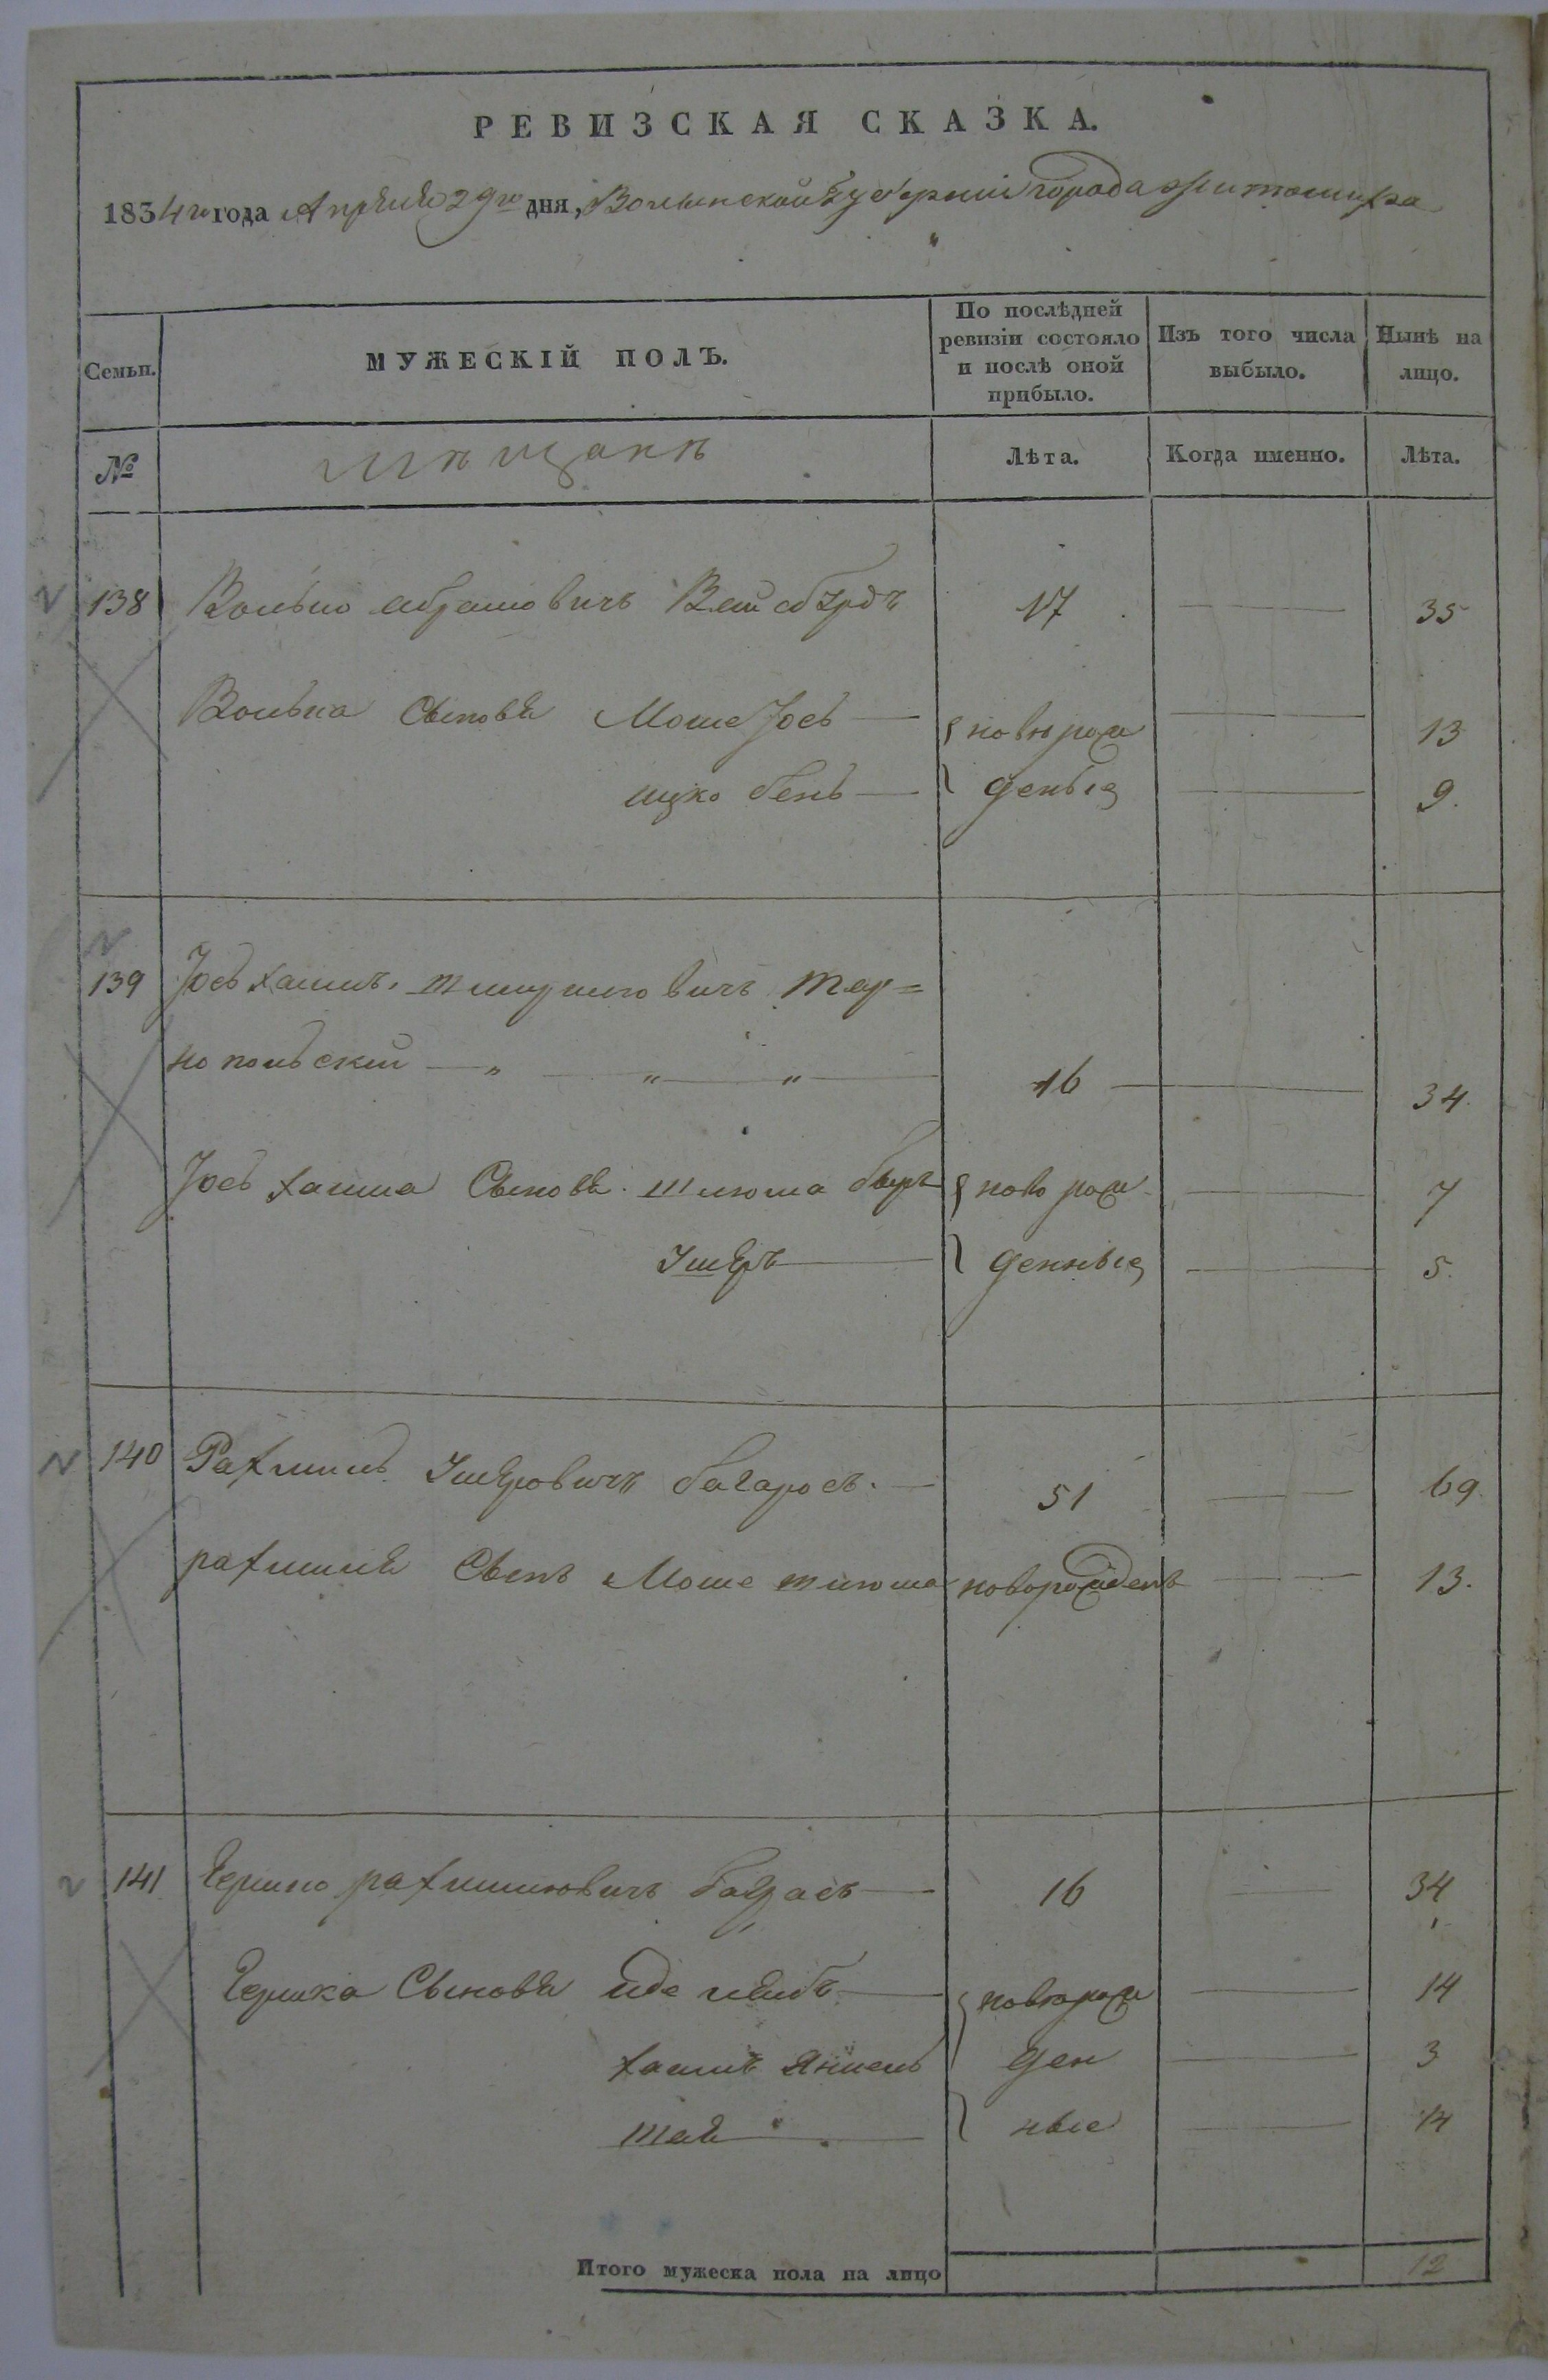 РЕВИЗСКАЯ СКАЗКА.
1834го года Апреля 29го дня, Волынской Губернии города Житомира
Семьи. МУЖЕСКІЙ ПОЛЪ. По послѣдней ревизіи состояло и послѣ оной прибыло. Изъ того числа выбыло. Нынѣ на лицо.
№ Мѣщанѣ Лѣта. Когда именно. Лѣта.
138 Волько Абрамовичъ 17 35
Волька Сыновя Моше Јось новорож 13
ицко бень деныя 9.
139 Јось хаимъ Шлиомовичъ Тар=
нопольский 16 34.
Јось хаима Сыновя Шлиома беръ новорож 7
Ушеръ денныя 5.
140 Рахмиль Ушеровичъ багаросъ. 51 69.
рахмиля Сынъ Моше шлиома новорожденъ 13.
141 Гершко рахмилиовичъ баграсъ 16 34
Гершка Сыновя Иде лейбъ новорож 14
хаимъ Янкель ден 3
ные 14
Итого мужеска пола на лицо 12